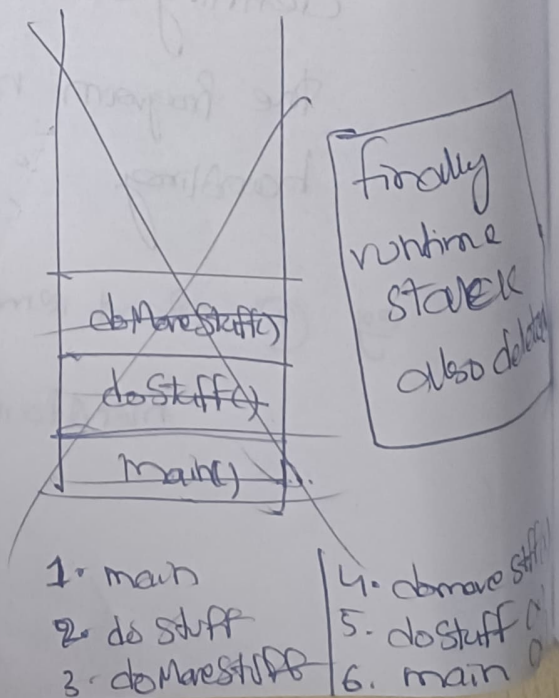 doMoreStuff()
doStuff()
main()
finally
runtime
stack
also
1. main
2. do stuff
3. doMoreStuff
4. domore
5. dostuff
6. main